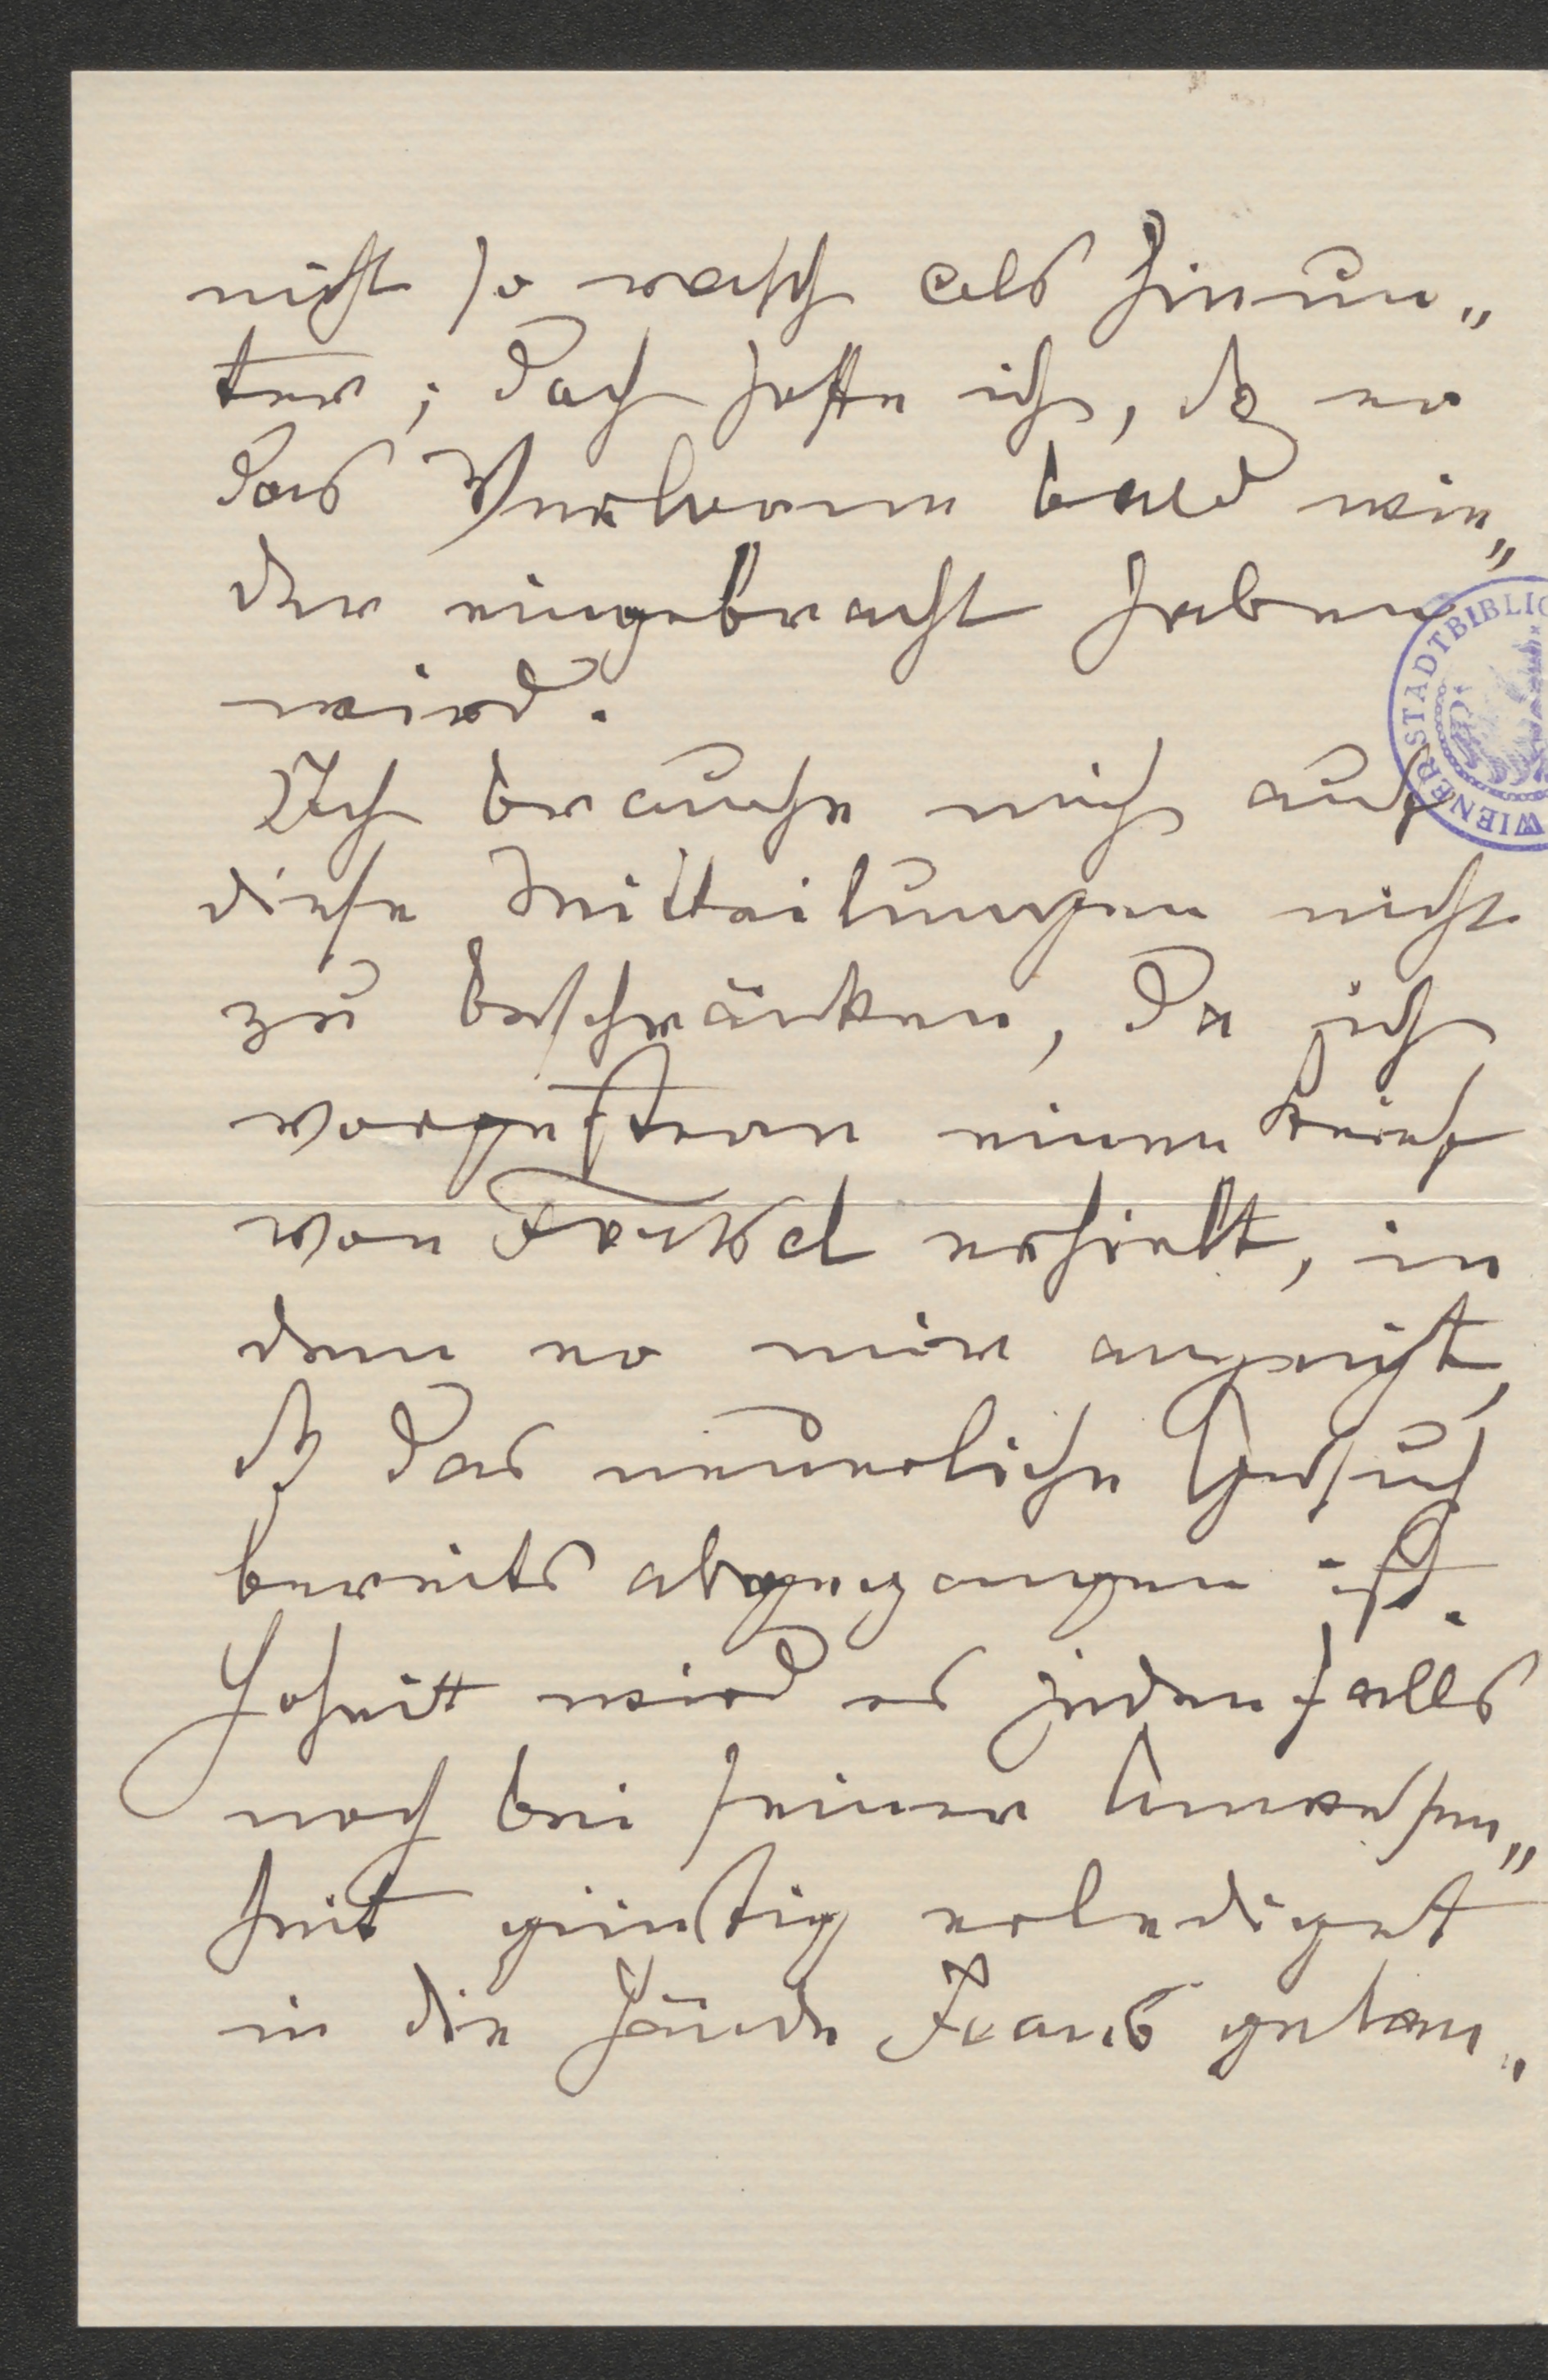 nicht so rasch als hinun„
ter; doch hoffe ich, dß er
das Verlorene bald wie„
der eingebracht haben
wird.
Ich brauche mich auf
diese Mitteilungen nicht
zu beschränken, da ich
vorgestern einen Brief
von erhielt, in
dem er mir anzeigt,
dß das neuerliche Gesuch
bereits abgegangen ist.
Hoheit wird es jedenfalls
noch bei seiner Anwesen„
heit günstig erlediget
in die Hände Franz gelan„
WIENER STADTBIBLIO